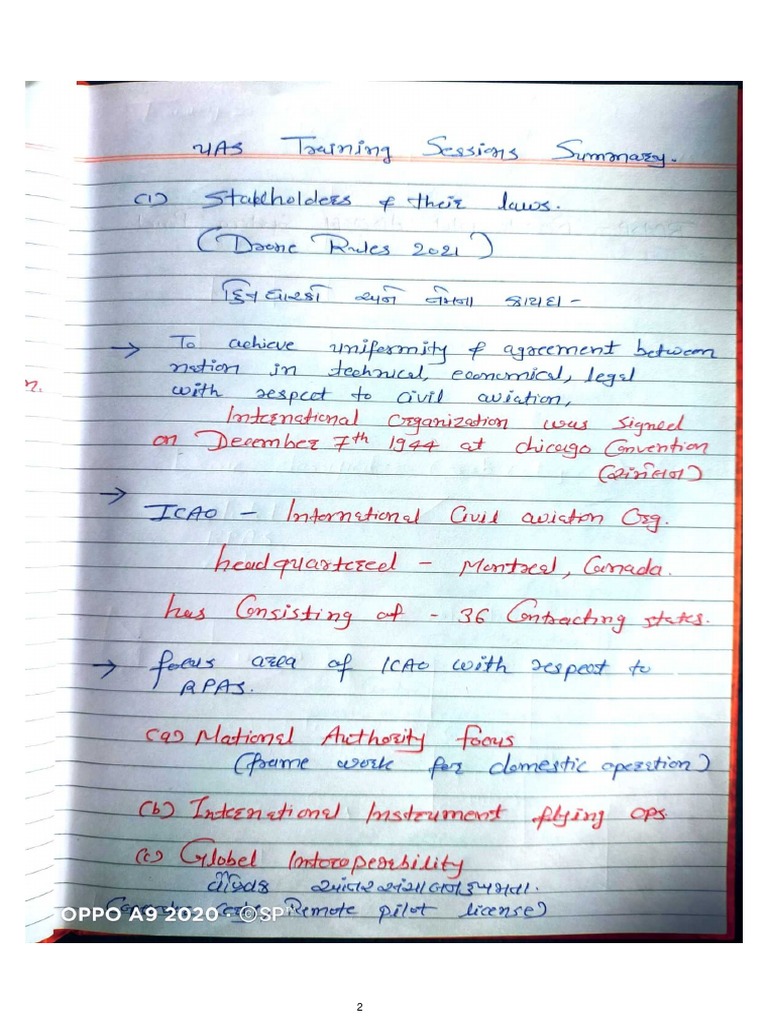 UAS Training Sessions Summary.
(1) Stakeholders & their laws.
(Drone Rules 2021)
અને તેમના કાયદા -
→ To achieve uniformity & agreement between
nation in technical, economical, legal
with respect to civil aviation,
n.
International Organization was signed
on December 7th 1944 at chicago Convention
(સંમેલન)
→ ICAO - International Civil aviation Org.
headquartered - Montreal, Canada.
has Consisting of - 36 Contracting states.
→ focus area of ICAO with respect to
RPAS.
(a) National Authority focus
(frame work for domestic operation)
(b) International Instrument flying ops
(c) Global Interoperability
વૈશ્વિક
Remote pilot license)
OPPO A9 2020 · ©SP
2